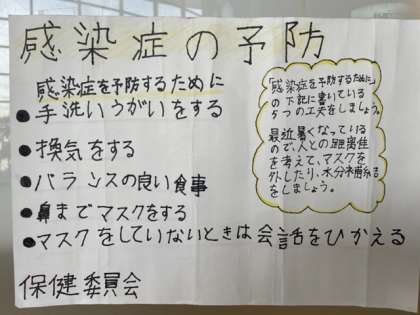 感染症の予防
感染症を予防するために
●手洗いうがいをする
●換気をする
●バランスの良い食事
●鼻までマスクをする
●マスクをしていないときは会話をひかえる
保健委員会
「感染症を予防するために」
の下記に書いている
5つの工夫をしましょう。
最近暑くなっている
ので、人との距離
を考えて、マスクを
外したり、水分補給
をしましょう。